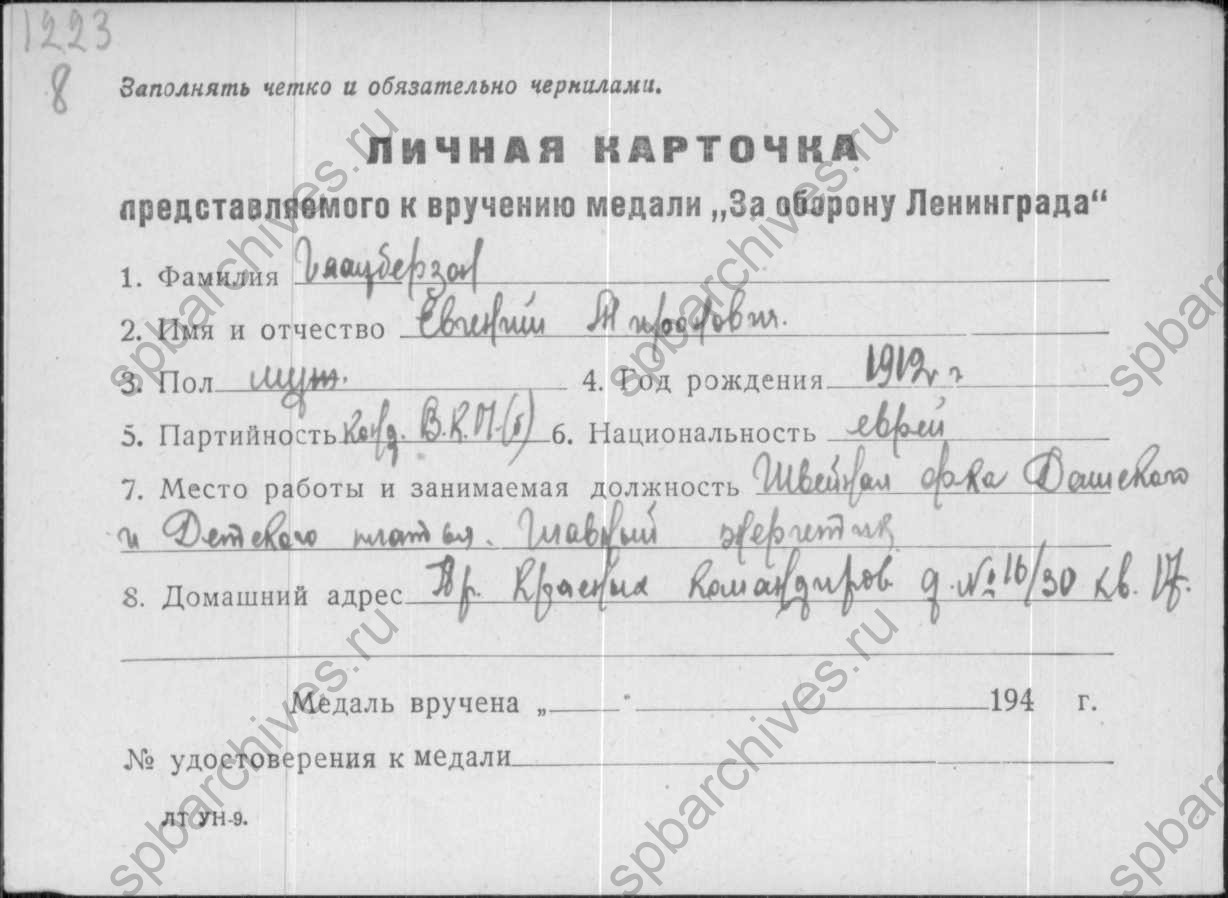 1223
8
Заполнять четко и обязательно чернилами.
ЛИЧНАЯ КАРТОЧКА
представляемого к вручению медали „За оборону Ленинграда“
1. Фамилия Глауберзон
2. Имя и отчество Евгений Миронович.
3. Пол муж. 4. Год рождения 1912 г
5. Партийность Канд. В.К.П.(б) 6. Национальность еврей
7. Место работы и занимаемая должность Швейная ф-ка Дамского
и Детского платья. Главный энергетик
8. Домашний адрес Пр. Красных Командиров д. № 16/30 кв. 17.
Медаль вручена „ “ 194 г.
№ удостоверения к медали
ЛТ УН-9.
spbarchives.ru